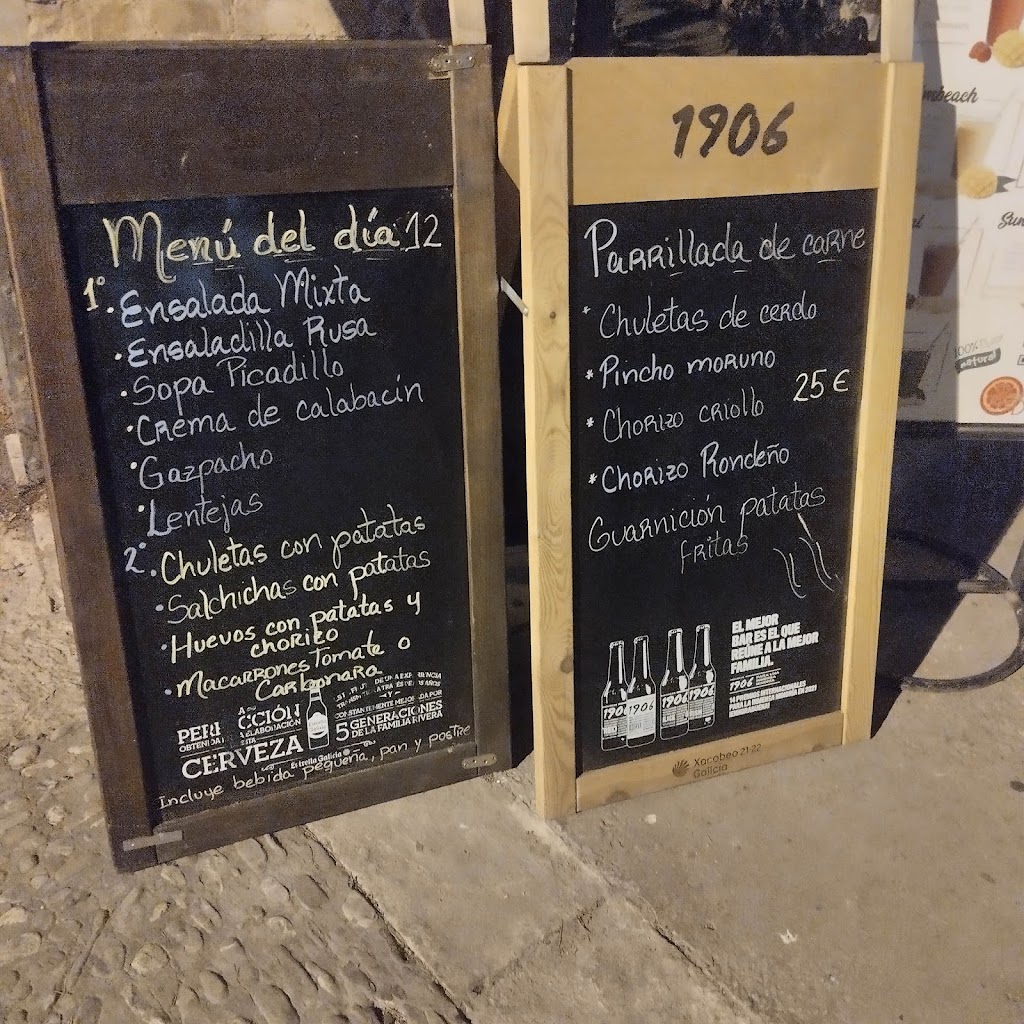 Menú del día 12
1º
· Ensalada Mixta
· Ensaladilla Rusa
· Sopa Picadillo
· Crema de calabacín
· Gazpacho
· Lentejas
2º · Chuletas con patatas
· Salchichas con patatas
· Huevos con patatas y
chorizo
· Macarrones Tomate o
Carbonara
CERVEZA
Estrella Galicia
CONSTANTEMENTE MEJORADA POR
5 GENERACIONES
DE LA FAMILIA RIVERA
Incluye bebida pequeña, pan y postre
1906
Parrillada de carne
* Chuletas de cerdo
* Pincho moruno
25 €
* Chorizo criollo
* Chorizo Rondeño
Guarnición patatas
fritas
EL MEJOR
BAR ES EL QUE
REÚNE A LA MEJOR
FAMILIA.
1906
1906
1906
1906
1906
Xacobeo 21·22
Galicia
100%
natural